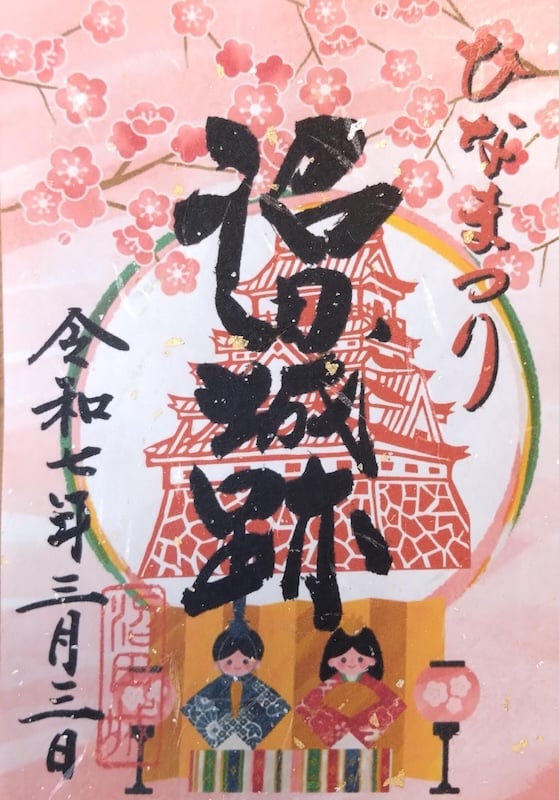 ひなまつり
沼田城跡
令和七年三月三日